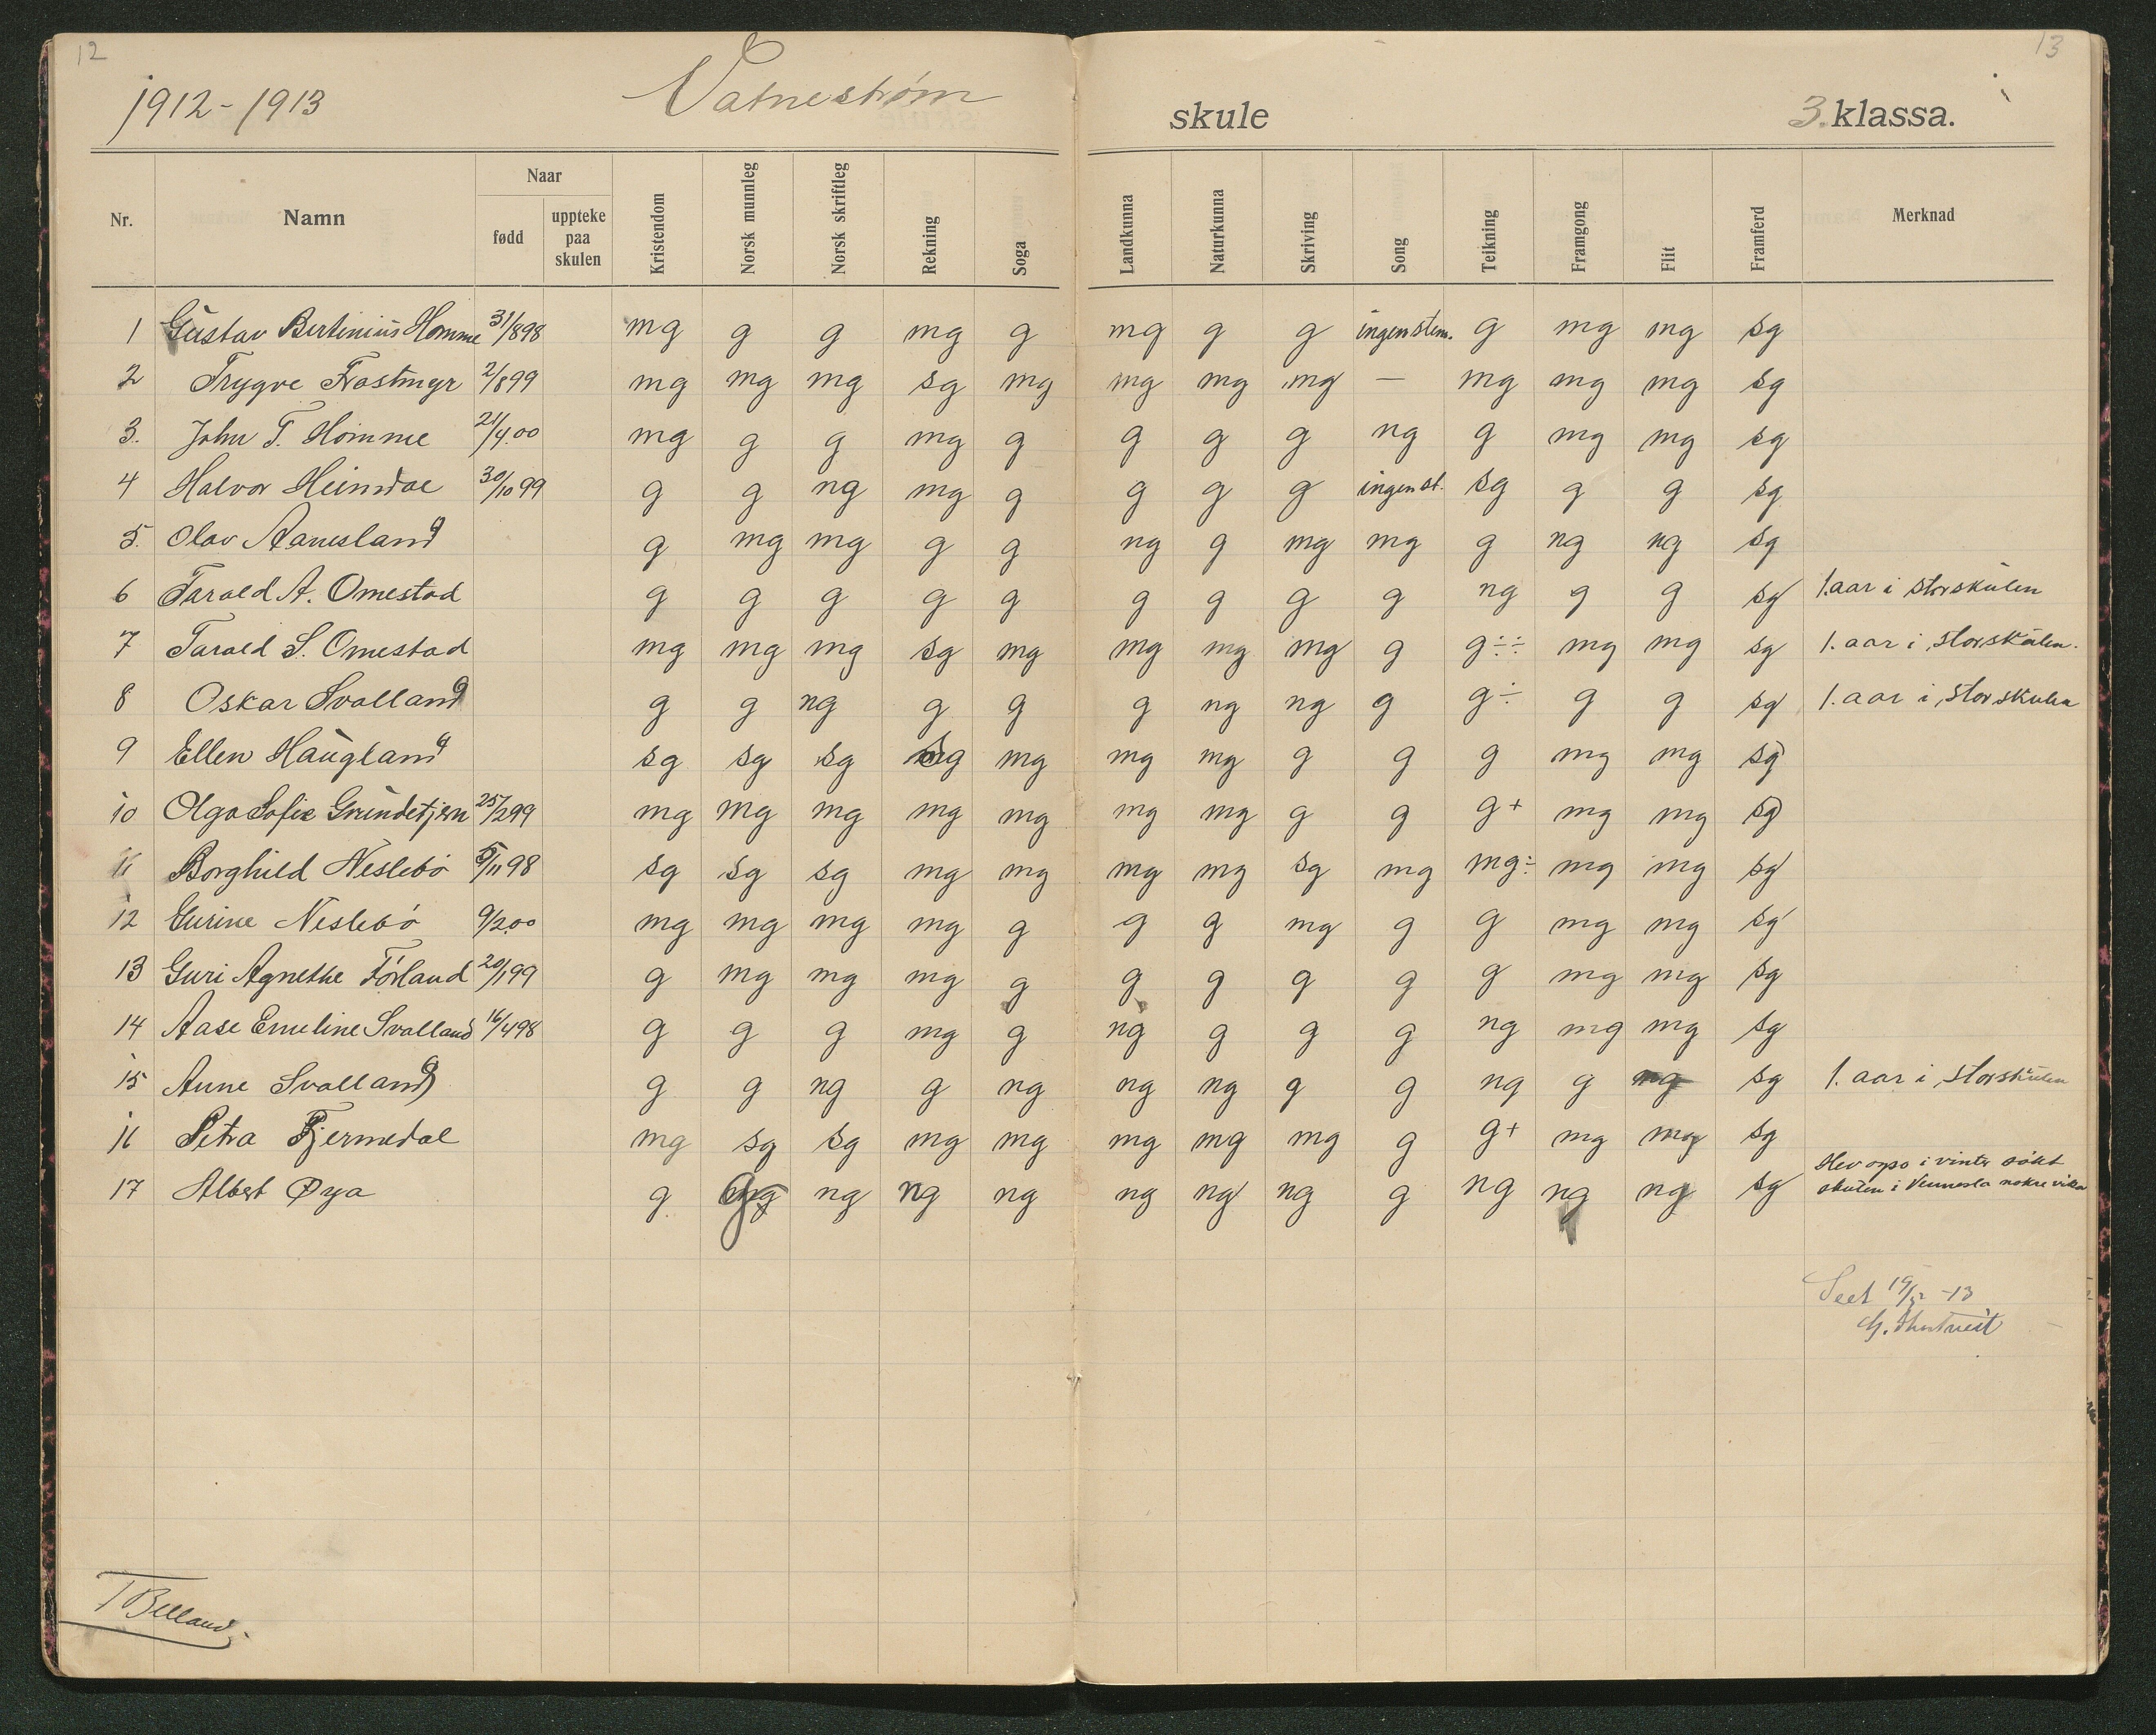 12
13
1912-1913 Vatnestrøm skule 3. klassa.
Nr. Namn Naar fødd uppteke paa skulen Kristendom Norsk munnleg Norsk skriftleg Rekning Soga Landkunna Naturkunna Skriving Song Teikning Framgong Flit Framferd Merknad
1 Gustav Bertinius Homme 31/898 mg g g mg g mg g g ingen stem. g mg mg sg
2 Trygve Frøstmyr 2/899 mg mg mg sg mg mg mg mg — mg mg mg sg
3. John T. Homme 21/4.00 mg g g mg g g g g ng g mg mg sg
4 Halvor Heimdal 30/10 99 g g ng mg g g g g ingen st. sg g g sg
5. Olav Aanesland g mg mg g g ng g mg mg g ng ng sg
6 Tarald A. Omestad g g g g g g g g g ng g g sg 1. aar i storskulen
7 Tarald S. Omestad mg mg mg sg mg mg mg mg g g÷÷ mg mg sg 1. aar i storskulen.
8 Oskar Svalland g g ng g g g ng ng g g÷ g g sg 1. aar i storskulen
9 Ellen Haugland sg sg sg sg mg mg mg g g g mg mg sg
10 Olga Sofie Grundetjern 25/299 mg mg mg mg mg mg mg g g g+ mg mg sg
11 Borghild Neslebø 5/11 98 sg sg sg mg mg mg mg sg mg mg÷ mg mg sg
12 Gurine Neslebø 9/2.00 mg mg mg mg g g g mg g g mg mg sg
13 Guri Agnethe Førland 20/199 g mg mg mg g g g g g g mg mg sg
14 Aase Emeline Svalland 16/498 g g g mg g ng g g g ng mg mg sg
15 Anne Svalland g g ng g ng ng ng g g ng g mg sg 1. aar i storskulen
16 Petra Fjermedal mg sg sg mg mg mg mg mg g g+ mg mg sg
17 Albert Øya g g ng ng ng ng ng ng g ng ng ng sg Hev ogso i vinter søkt
skulen i Vennesla nokre vikor
Seet 19/12 -13
T Belland.